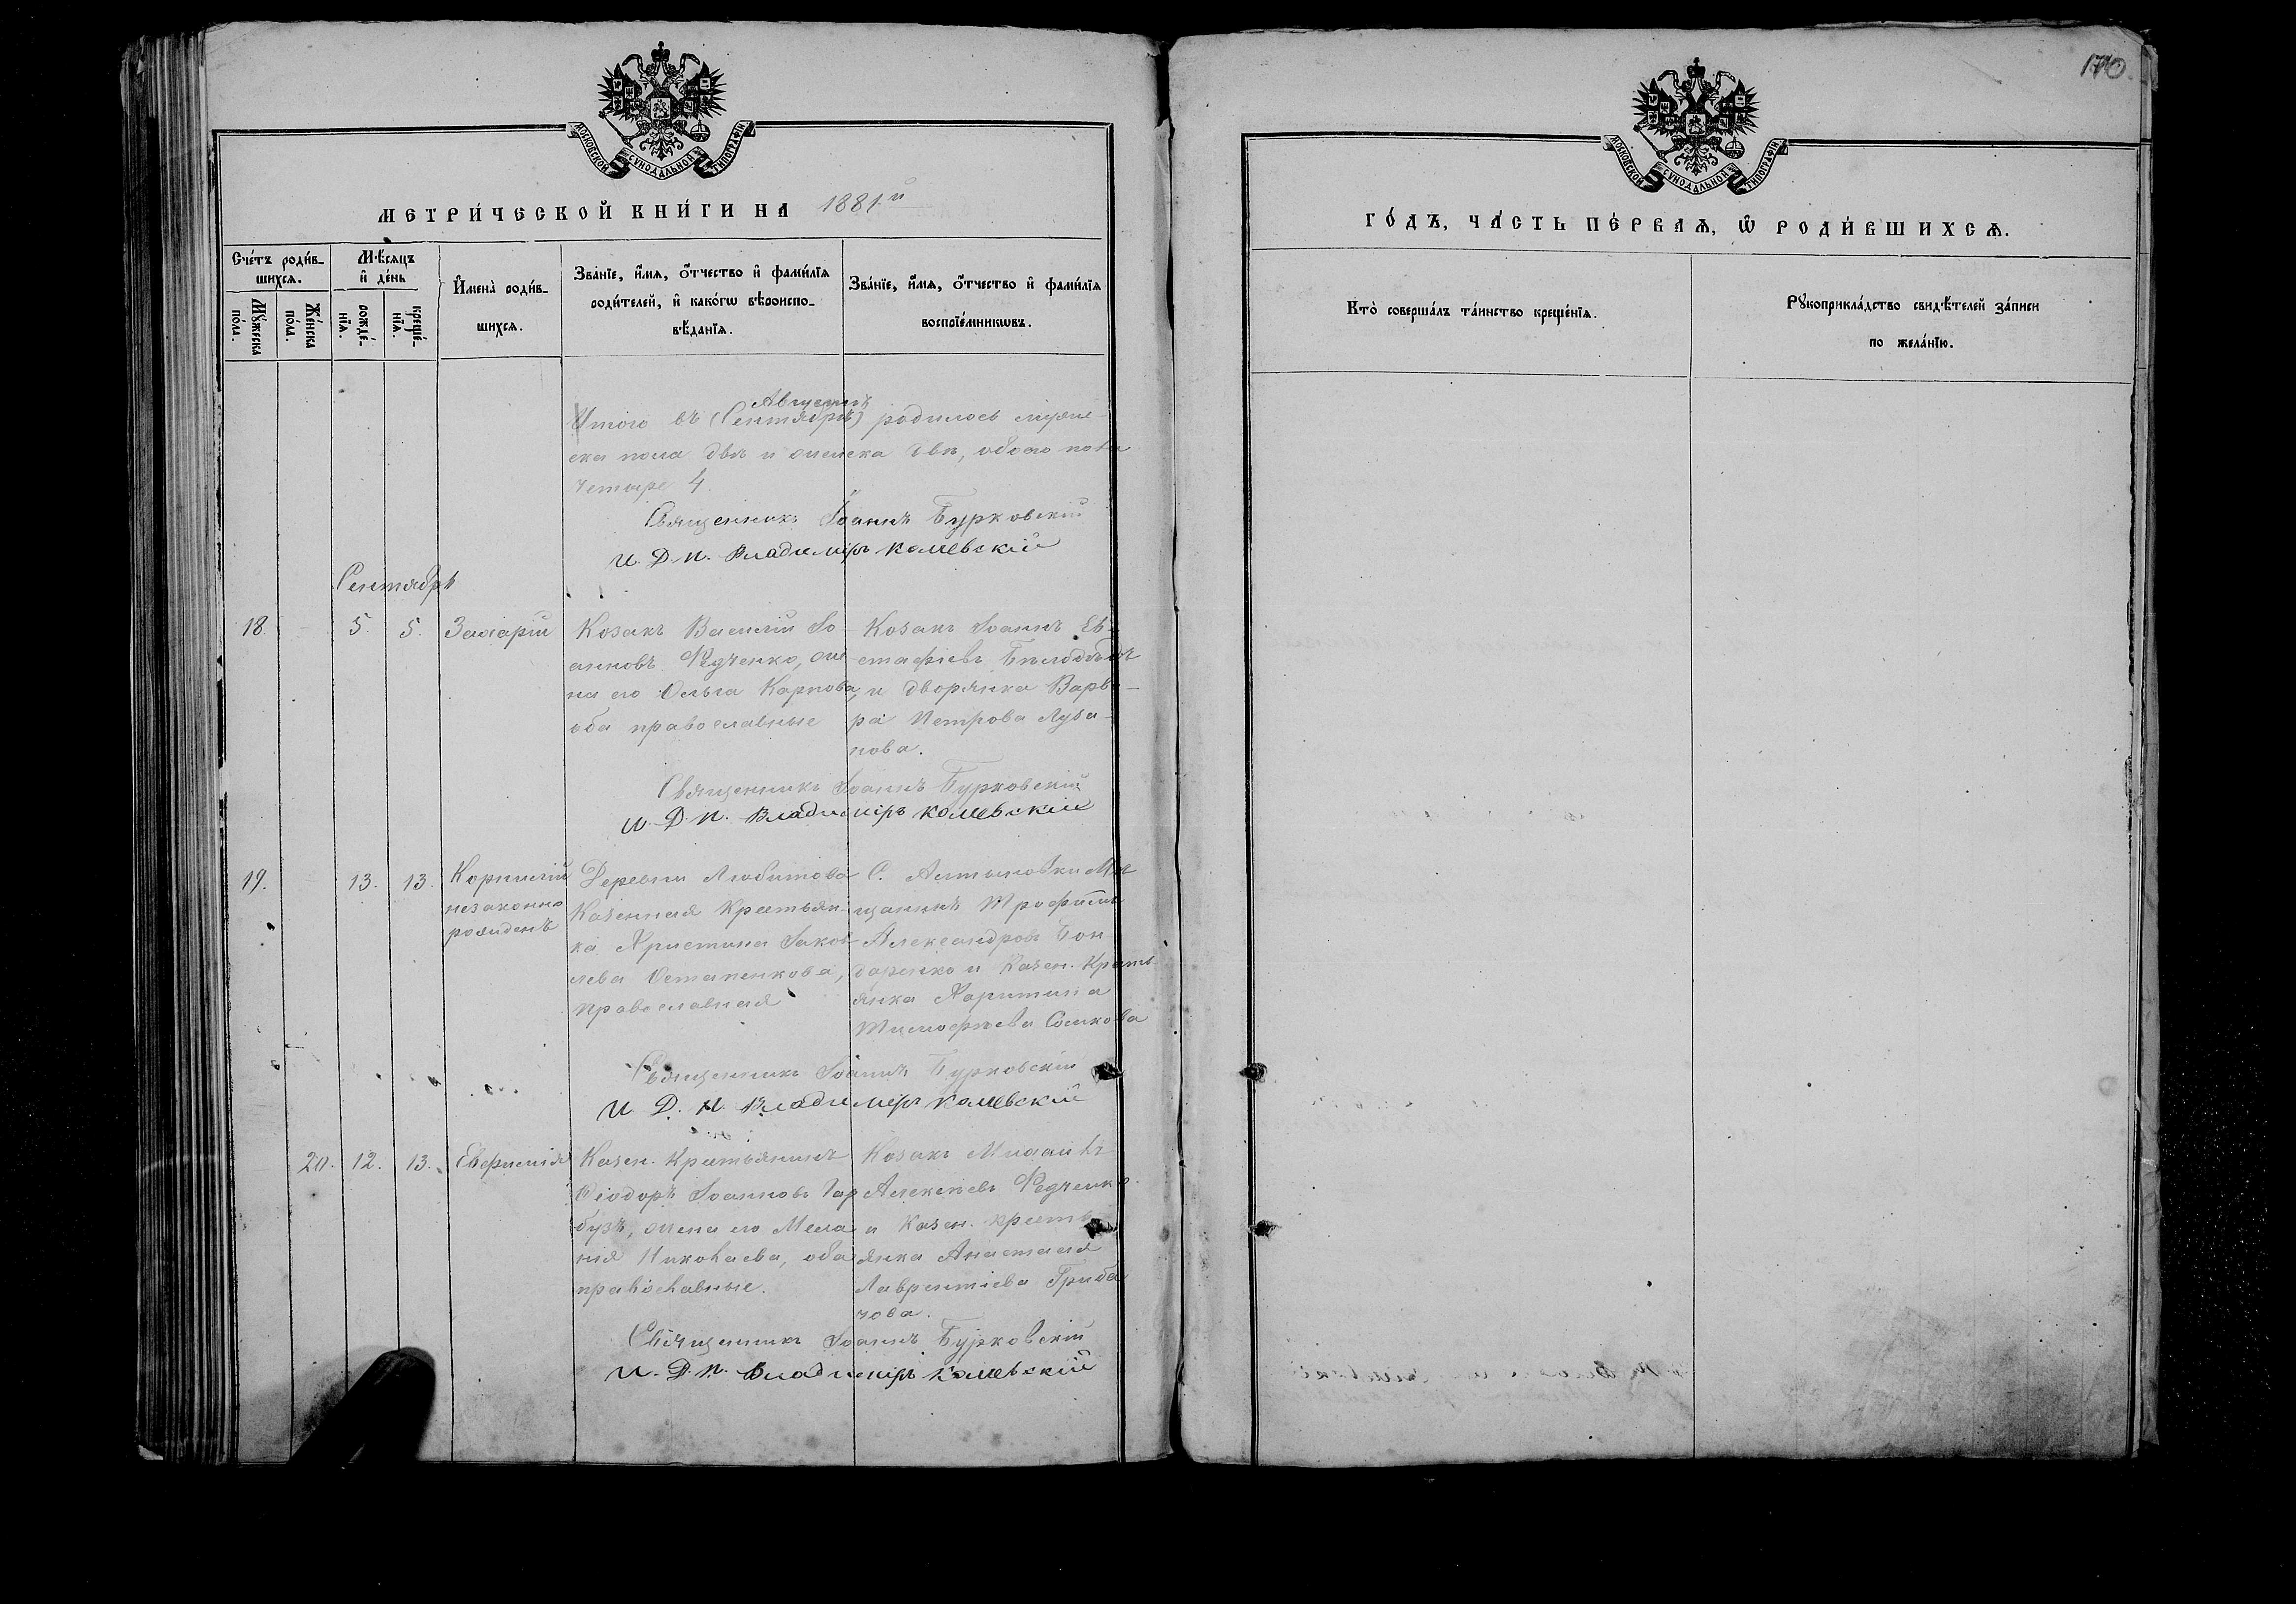 170
МОСКОВСКОЙ СѴНОДАЛЬНОЙ ТИПОГРАФІИ
МЕТРИ́ЧЕСКОЙ КНИ́ГИ НА 1881й
Сче́тъ роди́в-
шихсѧ.
Мѣ́сѧцъ
и҆ де́нь
И҆мена̀ роди́в-
шихсѧ.
Мꙋ́жеска
по́ла.
Же́нска
по́ла.
рожде́-
нїѧ.
креще́-
нїѧ.
Зва́нїе, и҆́мѧ, ѻ҆́тчество и҆ фами́лїѧ
роди́телей, и҆ како́гѡ вѣроиспо-
вѣ́данїѧ.
Зва́нїе, и҆́мѧ, ѻ҆́тчество и҆ фами́лїѧ
воспрїе́мникѡвъ.
Августѣ
Итого въ (Сентябрѣ) родилось муже-
ска пола два и женска двѣ, обоего пола
четыре 4.
Священникъ Іоаннъ Бурковскій
И. Д. П. Владиміръ
Сентябрь
18. 5. 5. Захарій
Козакъ Василій Іо-
анновъ Федченко, же
на его Ольга Карпова,
оба православные
Козакъ Іоаннъ Ев-
стафіевъ
и дворянка Варва-
ра Петрова Луза-
нова.
Священникъ Іоаннъ Бурковскій
И. Д. П. Владиміръ
19. 13. 13. Корнилій
незаконно
рожденъ
Деревни Любитова
Казенная Крестьян-
ка Христина Іаков
лева Остапенкова,
православная
С. Алтыновки Мѣ
щанинъ Трофимъ
Александровъ Бон
даренко и Казен. Кресть
янка Харитина
Тимофѣева
Священникъ Іоаннъ Бурковскій
И. Д. П. Владиміръ
20. 12. 13. Евфимія
Казен. Крестьянинъ
Ѳеодоръ Іоанновъ Гар
бузъ, жена его Мела
нія Николаева, оба
православные.
Козакъ Михаилъ
Алексѣевъ Федченко
и Казен. кресть
янка Анастасія
Лаврентіева Гриба
чова.
Священникъ Іоаннъ Бурковскій
И. Д. П. Владиміръ
МОСКОВСКОЙ СѴНОДАЛЬНОЙ ТИПОГРАФІИ
ГО́ДЪ, ЧА́СТЬ ПЕ́РВАѦ, Ѡ҆ РОДИ́ВШИХСѦ.
Кто̀ соверша́лъ та́инство креще́нїѧ.
Рꙋкоприкла́дство свидѣ́телей за́писи
по жела́нїю.